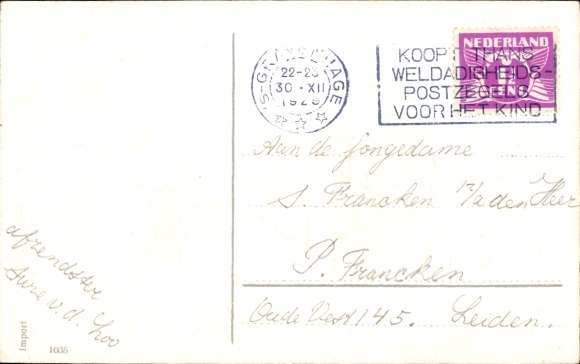 NEDERLAND
CENT
'S-GRAVENHAGE
22-23
30 · XII
1929
KOOPT THANS
WELDADIGHEIDS-
POSTZEGELS
VOOR HET KIND
Aan de jongedame
S. Francken p/a den Heer
P. Francken
Oude Vest 145. Leiden.
afzendster
v. d. Loo
Import
1035